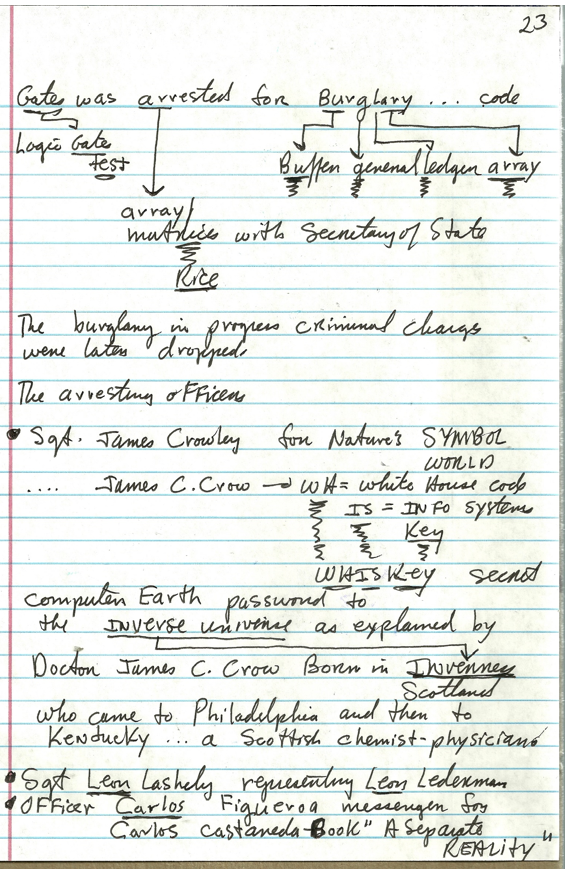 23
Gates was arrested for Burglary ... code
Logic Gate
test
Buffer general ledger array
array/
matrices with Secretary of State
Rice
The burglary in progress criminal charge
were later dropped.
The arresting officers
• Sgt. James Crowley for Nature's SYMBOL
WORLD
.... James C. Crow → WH = White House code
IS = INFO Systems
Key
WHISKey secret
computer Earth password to
the INVERSE universe as explained by
Doctor James C. Crow Born in Inverness
Scotland
who came to Philadelphia and then to
Kentucky ... a Scottish chemist-physician
• Sgt Leon Lashely representing Leon Lederman
• Officer Carlos Figueroa messenger for
Carlos Castaneda Book "A Separate
REALITY"